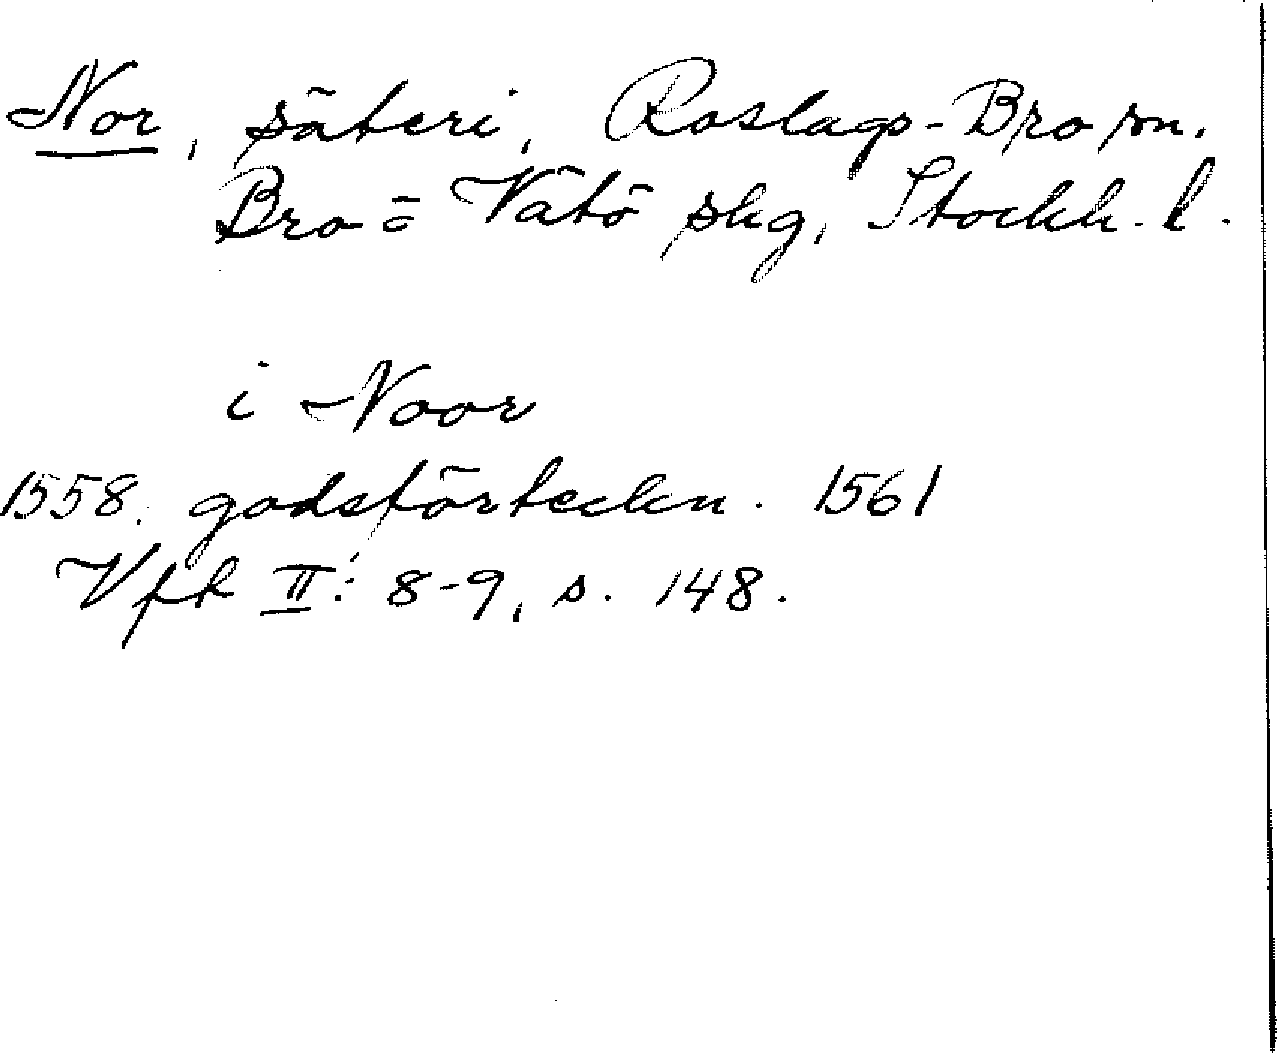 Nor, säteri, Roslags-Bro sn.
Bro ö Vätö skg, Stockh. l.
i Noor
1558. godsförteckn. 1561
Vfh II: 8-9, s. 148.